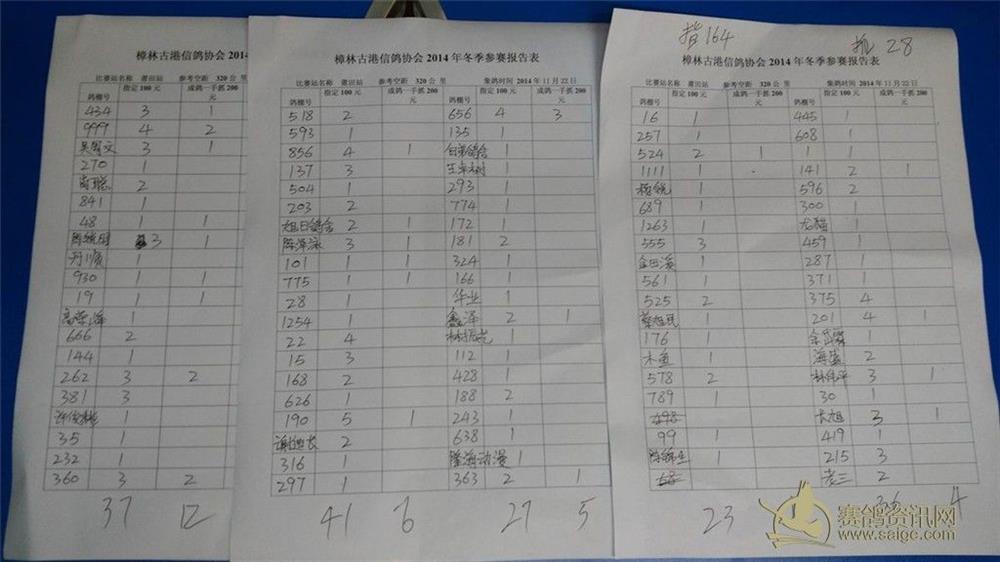 樟林古港信鸽协会 2014
比赛站名称 莆田站 参考空距 320 公 里
鸽棚号 指定 100 元 成鸽一手抓 200 元
434 3 1
999 4 2
3 1
270 1
2
841 1
48 1 1
3 1
1
930 1 1
19 1 1
1
666 2
144 1
262 3 2
381 3
1
35 1
232 1
360 3 2
37 12
樟林古港信鸽协会 2014 年冬季参赛报告表
比赛站名称 莆田站 参考空距 320 公 里 集鸽时间 2014 年 11 月 22 日
鸽棚号 指定 100 元 成鸽一手抓 200 元 鸽棚号 指定 100 元 成鸽一手抓 200 元
518 2 656 4 3
593 1 135 1
856 4 1 1
137 3 1
504 1 293 1
203 2 774 1
旭日鸽舍 2 1 172 1
3 1 181 2
101 1 1 324 1
775 1 1 166 1
28 1 华业 1
1254 1 鑫泽 2 1
22 4 1
15 3 112 1
168 2 428 1
626 1 188 2
190 5 1 243 1
2 638 1
316 1 隆海动漫 1
297 1 363 2 1
41 6 27 5
指164 抓 28
樟林古港信鸽协会 2014 年冬季参赛报告表
比赛站名称 莆田站 参考空距 320 公 里 集鸽时间 2014 年 11 月 22 日
鸽棚号 指定 100 元 成鸽一手抓 200 元 鸽棚号 指定 100 元 成鸽一手抓 200 元
16 1 445 1
257 1 608 1
524 2 1 1 1
1111 1 141 2 1
1 596 2
689 1 300 1
1263 1 1
555 3 459 1
1 287 1
561 1 371 1
525 2 375 4
1 201 4 1
176 1 1
木鱼 1 2
578 2 3 1
789 1 30 1
698 大旭 3 1
99 1 419 1
1 215 3
68 老三 2
23 36 4
赛鸽资讯网
www.saige.com